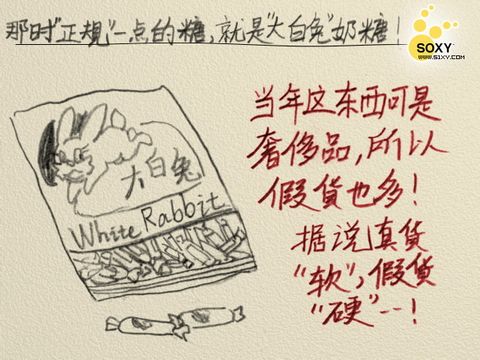 那时“正规”一点的糖,就是“大白兔”奶糖!
SOXY
www.51XY.com
当年这东西可是
奢侈品,所以
假货也多!
据说真货
“软”,假货
“硬”--!
大白兔
White Rabbit